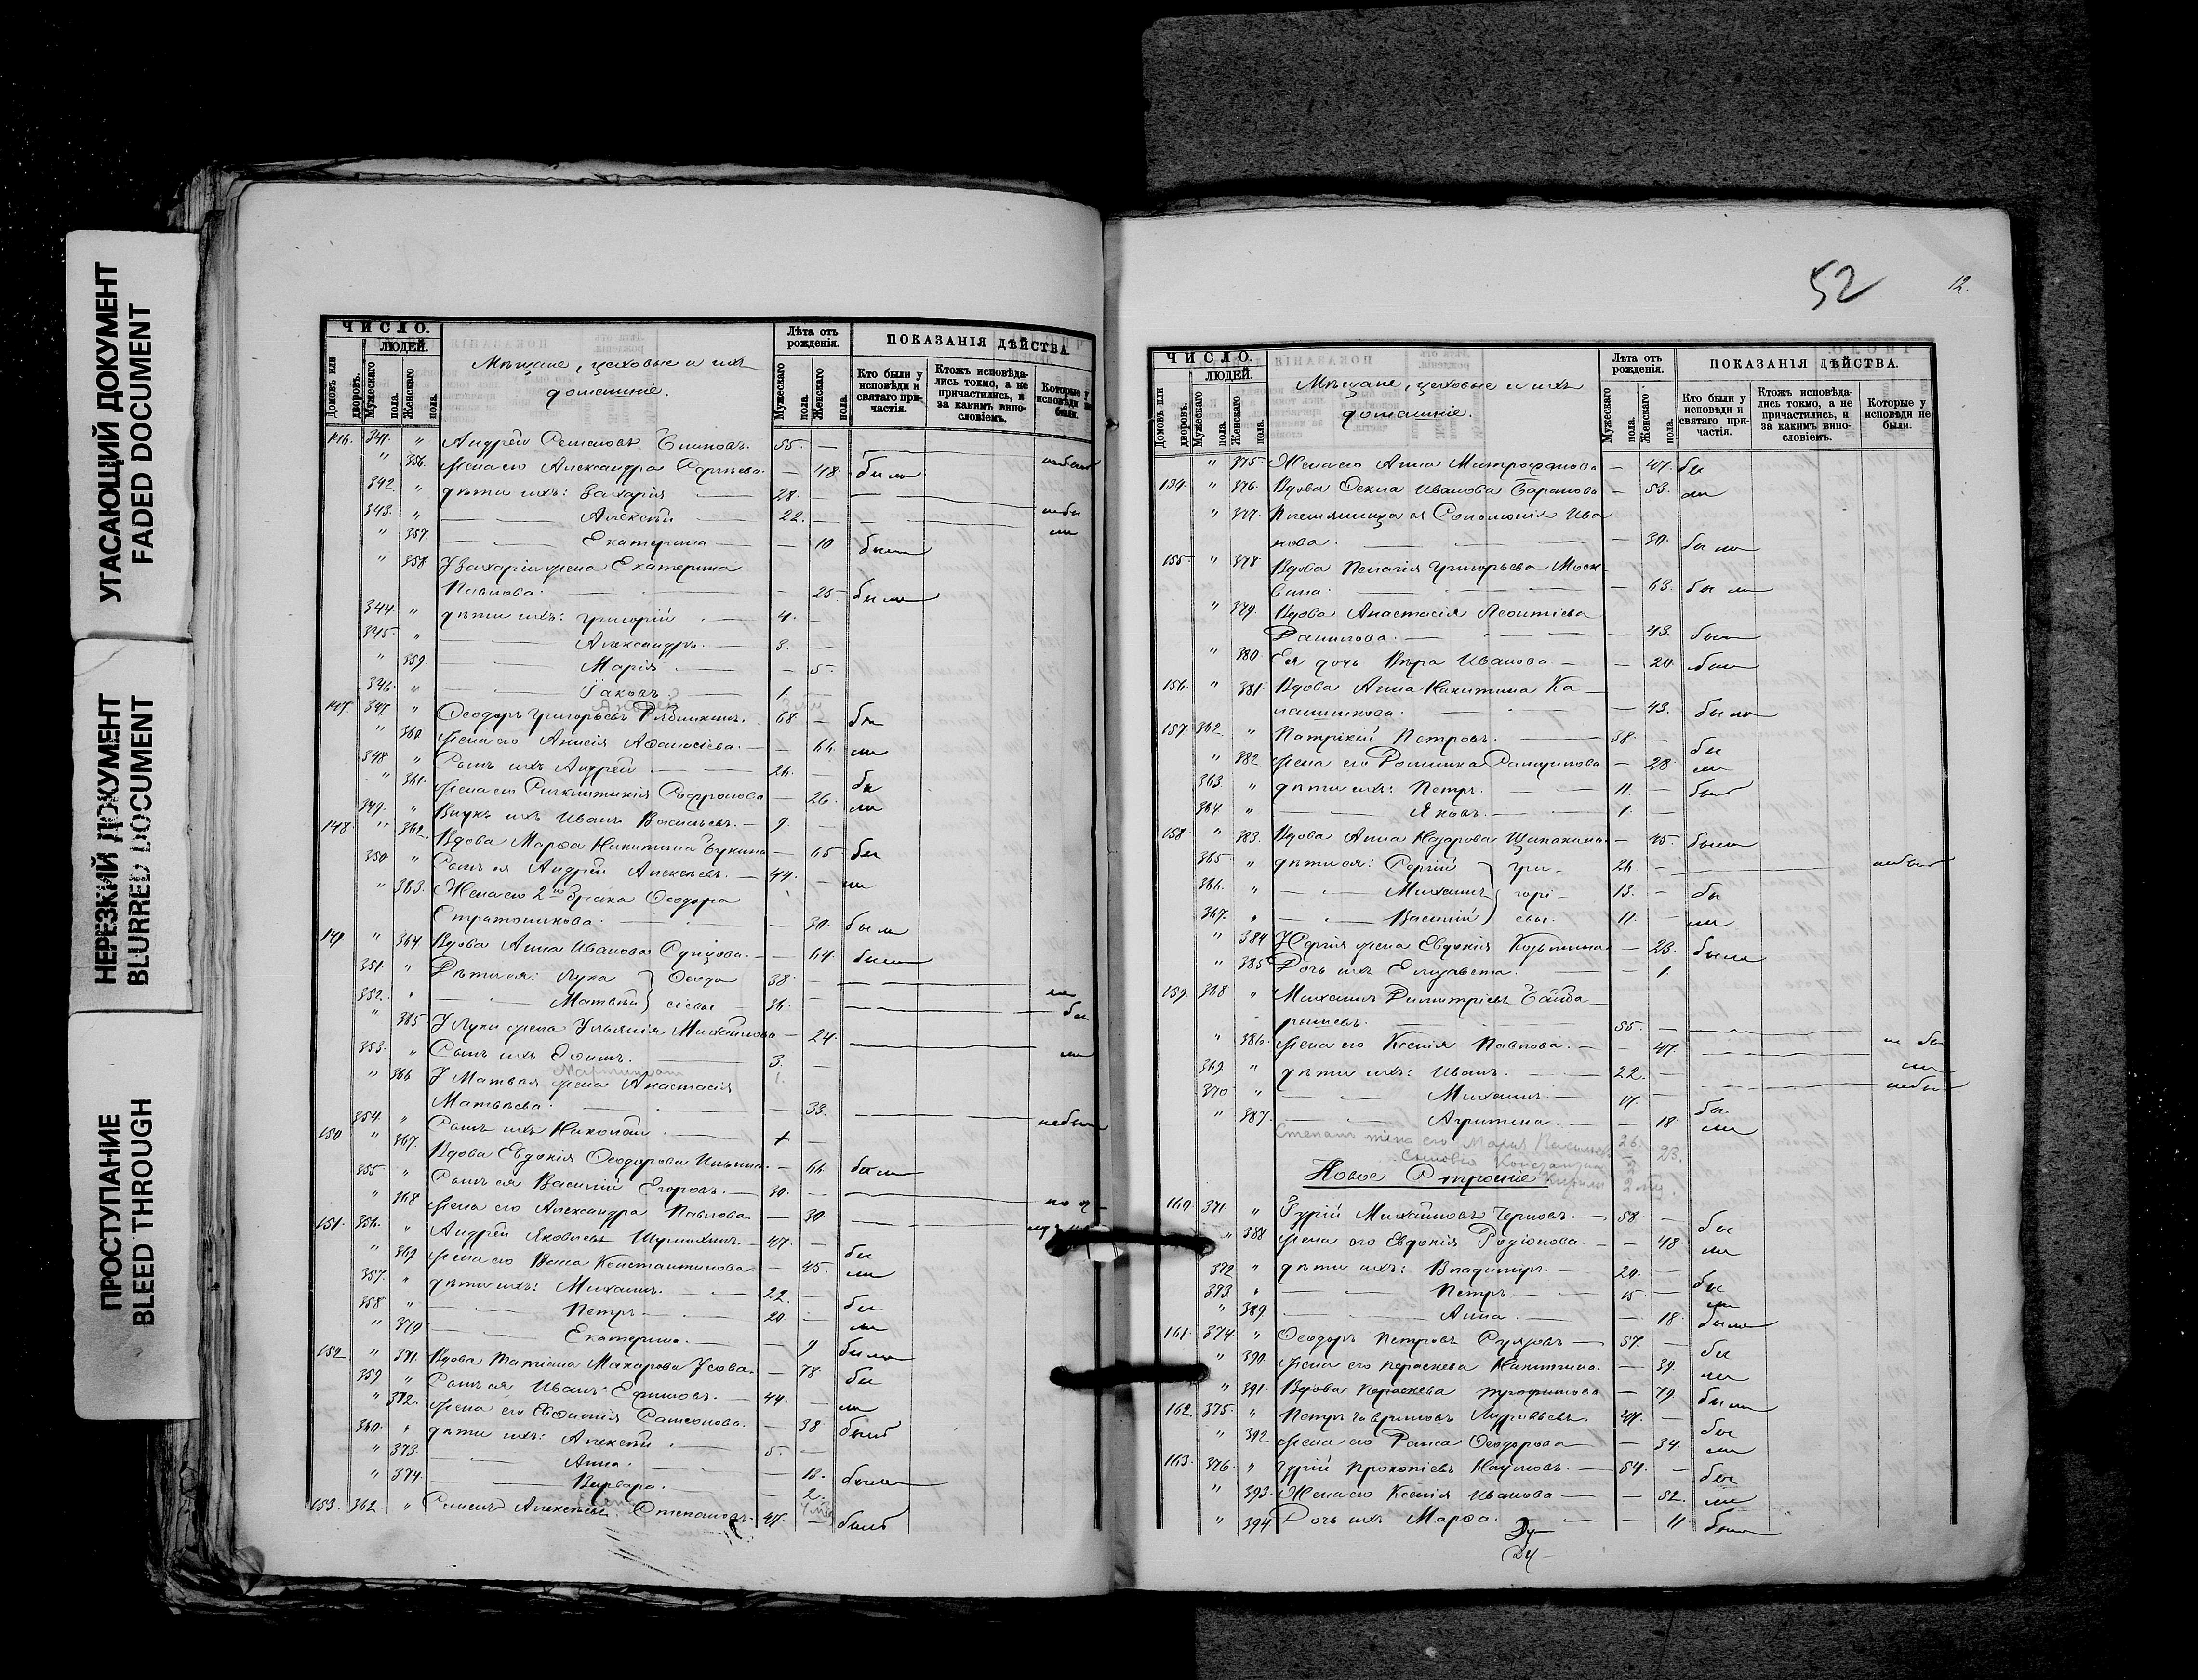 УГАСАЮЩИЙ ДОКУМЕНТ
FADED DOCUMENT
НЕРЕЗКИЙ ДОКУМЕНТ
BLURRED DOCUMENT
ПРОСТУПАНИЕ
BLEED THROUGH
ЧИСЛО.
ЛЮДЕЙ.
Домовъ или дворовъ.
Мужескаго пола.
Женскаго пола.
Мѣщане, цеховые и ихъ
домашніе.
Лѣта отъ рожденія.
Мужескаго пола.
Женскаго пола.
ПОКАЗАНІЯ ДѢЙСТВА.
Кто были у исповѣди и святаго причастія.
Ктожъ исповѣдались токмо, а не причастились, и за какимъ винословіемъ.
Которые у исповѣди не были.
146. 341. " Андрей Семеновъ 55. —
" 356. жена его Александра — 48. были
342. " дѣти ихъ: Захарія 28. —
343. " Алексѣй 22. —
" 357. Екатерина — 10 были
" 358. У Захаріи жена Екатерина
Павлова. — 25. были
344. " дѣти ихъ: Григорій 4. —
345. " Александръ. 3. —
" 359. Марія — 5.
346. " Іаковъ. 1.
147. 347. " Ѳеодоръ Григорьевъ 68. — бы
" 360. жена его Анисія Аѳанасіева. — 66. ли
348 " Сынъ ихъ Андрей 26. — бы
" 361. жена его Софронова — 26. ли
349. " Внукъ ихъ Иванъ Васильевъ. 9. —
148. " 362. Вдова Марѳа Никитина Букина — 65 бы
350 " Сынъ ея Андрей Алексѣевъ. 44. — ли
" 363. Жена его 2го брака Ѳеодора
Стратоникова. — 30. были
149. " 364. Вдова Анна Иванова — 64. были
351. " Дѣти ея: Лука Ѳеодо 38. —
352. " Матвѣй сіевы 36.
" 365 У Луки жена Ульянія Михайлова — 24.
353. " Сынъ ихъ Ефимъ. 3. —
" 366 У Матвѣя жена Анастасія
Матвѣева. — 33. небыли
354. " Сынъ ихъ Николай
150 " 367. Вдова Евдокія Ѳеодорова Ильина. — 66 были
355. " Сынъ ея Василій Егоровъ. 30. —
" 368 жена его Александра Павлова — 30
151. 356. " Андрей Яковлевъ 47. — бы
" 369 жена его Васса Константинова — 45. ли
357. " дѣти ихъ: Михаилъ. 22. — бы
358 " Петръ 20. — ли
" 370 Екатерина. — 9 были
152 " 371. Вдова Татіана Макарова Усова. — 78 бы
359 " Сынъ ея Иванъ Ефимовъ. 44. — ли
" 372. жена его Евфимія Самсонова. — 38 былъ
360. " дѣти ихъ: Алексѣй 5. —
" 373. Анна. — 13. были
" 374. Варвара. — 2.
153. 362. " Алексѣй Степановъ. 47. — былъ
52
12.
ЧИСЛО.
ЛЮДЕЙ.
Домовъ или дворовъ.
Мужескаго пола.
Женскаго пола.
Мѣщане, цеховые и ихъ
домашніе.
Лѣта отъ рожденія.
Мужескаго пола.
Женскаго пола.
ПОКАЗАНІЯ ДѢЙСТВА.
Кто были у исповѣди и святаго причастія.
Ктожъ исповѣдались токмо, а не причастились, и за какимъ винословіемъ.
Которые у исповѣди не были.
" 375. Жена его Анна Митрофанова — 47. бы
154. " 376. Вдова Ѳекла Иванова Баранова — 53. ли
" 377. Племянница ея Соломонія Ива
нова. — 30. были
155 " 378 Вдова Пелагія Григорьева Моск-
вина. — 63. были
" 379. Вдова Анастасія Леонтіева
Данилова. — 43. была
" 380 Ея дочь Вѣра Иванова. — 20. была
156. " 381. Вдова Анна Никитина Ка-
лашникова. — 43. были
157. 362 " Патрикій Петровъ. 38. — бы
" 382 жена его — 28 ли
363. " дѣти ихъ: Петръ. 11. — былъ
364 " Яковъ. 1. —
158. " 383. Вдова Анна Назарова — 45. были
365 " дѣти ея: Сергій Гри- 26. — небылъ
366. " Михаилъ горі- 13. — бы
367. " Василій евы. 11. — ли
" 384 У Сергія жена Евдокія Козьмина — 23. была
" 385 Дочь ихъ Елизавета. — 1
159. 368 " Михаилъ Димитріевъ
55. —
" 386. жена его Ксенія Павлова. — 47. не бы
369 " дѣти ихъ: Иванъ. 22. — ли
370 " Михаилъ. 17. — бы
" 387. Агрипина. — 18. ли
Степанъ жена его Марья Васильева 26. 23.
Новое Строеніе
160. 371 " Гурій Михайловъ Черновъ. 58. — бы
" 388 жена его Евдокія Родіонова. — 48. ли
372 " дѣти ихъ: Владиміръ. 20. — бы
373 " Петръ 15 — ли
" 389. Анна. — 18. была
161. 374. " Ѳеодоръ Петровъ 57. — бы
" 390 жена его Параскева Никитина. — 39. ли
" 391. Вдова Параскева Трофимова — 79. были
162 375. " Петръ Гавриловъ 47. — бы
" 392 жена его Раиса Ѳеодорова — 34. ли
163. 376. " Гурій Прокопіевъ Наумовъ. 54. — бы
" 393. Жена его Ксенія Иванова — 52. ли
" 394 Дочь ихъ Марѳа. — 11 была